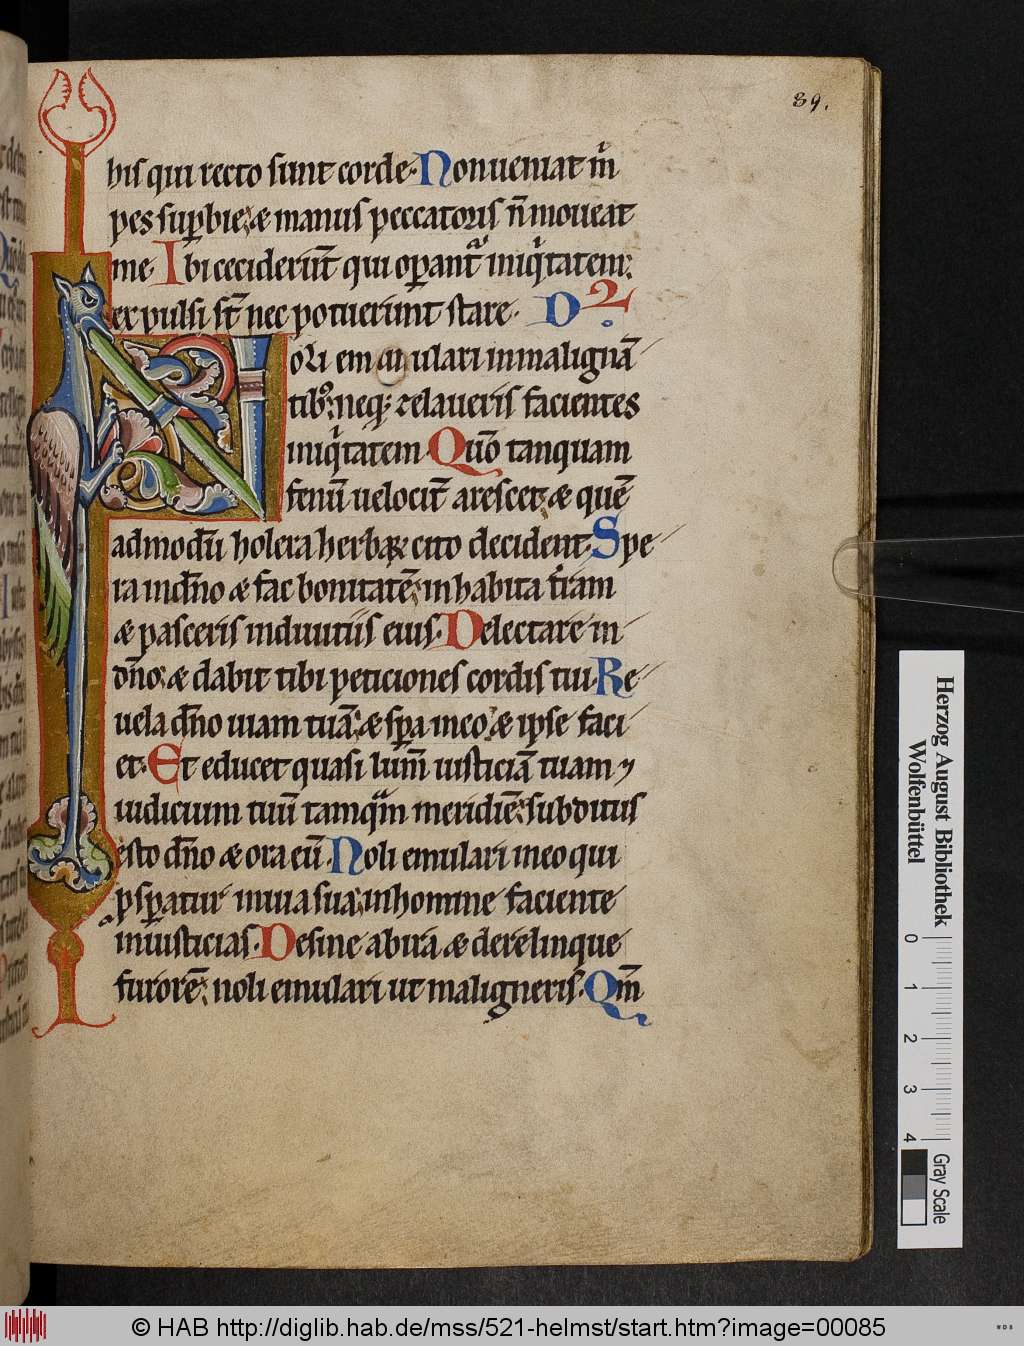 39.
bis qui recto sunt corde. Non ueniat m̄
pes sup̄bie; & manus peccatoris n̄ moueat
me. Ibi cecider̄t qui op̄ant᷑ iniq̇tatem;
expulsi st̄ nec potuerunt stare. D̄
Noli emulari in maligna᷑
tib9; neq; zelaueris facientes
iniq̇tatem. Qm̄ tanquam
fenū uelocit᷑ arescet; & quē
admodū holera herbaꝝ cito decident. Spe
ra in dn̄o & fac bonitatē; inhabita t᷑ram
& pasceris in diuitiis eius. Delectare in
dn̄o; & dabit tibi peticiones cordis tui. Re
uela dn̄o uiam tuā; & sp̄a in eo; & ipse faci
et. Et educet quasi lum̄ iusticiā tuam ⁊
iudicium tuū tamquā meridiē; subditus
esto dn̄o & ora eū. Noli emulari in eo qui
ꝓsp̄atur in uia sua; in homine faciente
iniusticias. Desine ab ira & derelinque
furorē; noli emulari ut maligneris. Qm̄
Herzog August Bibliothek
Wolfenbüttel
0 1 2 3 4
Gray Scale
© HAB http://diglib.hab.de/mss/521-helmst/start.htm?image=00085